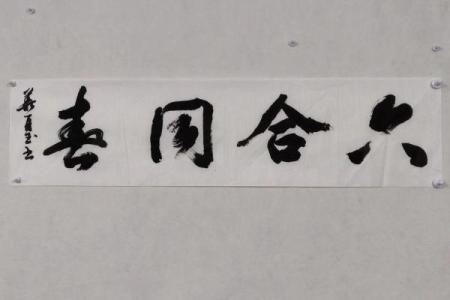 六合同春